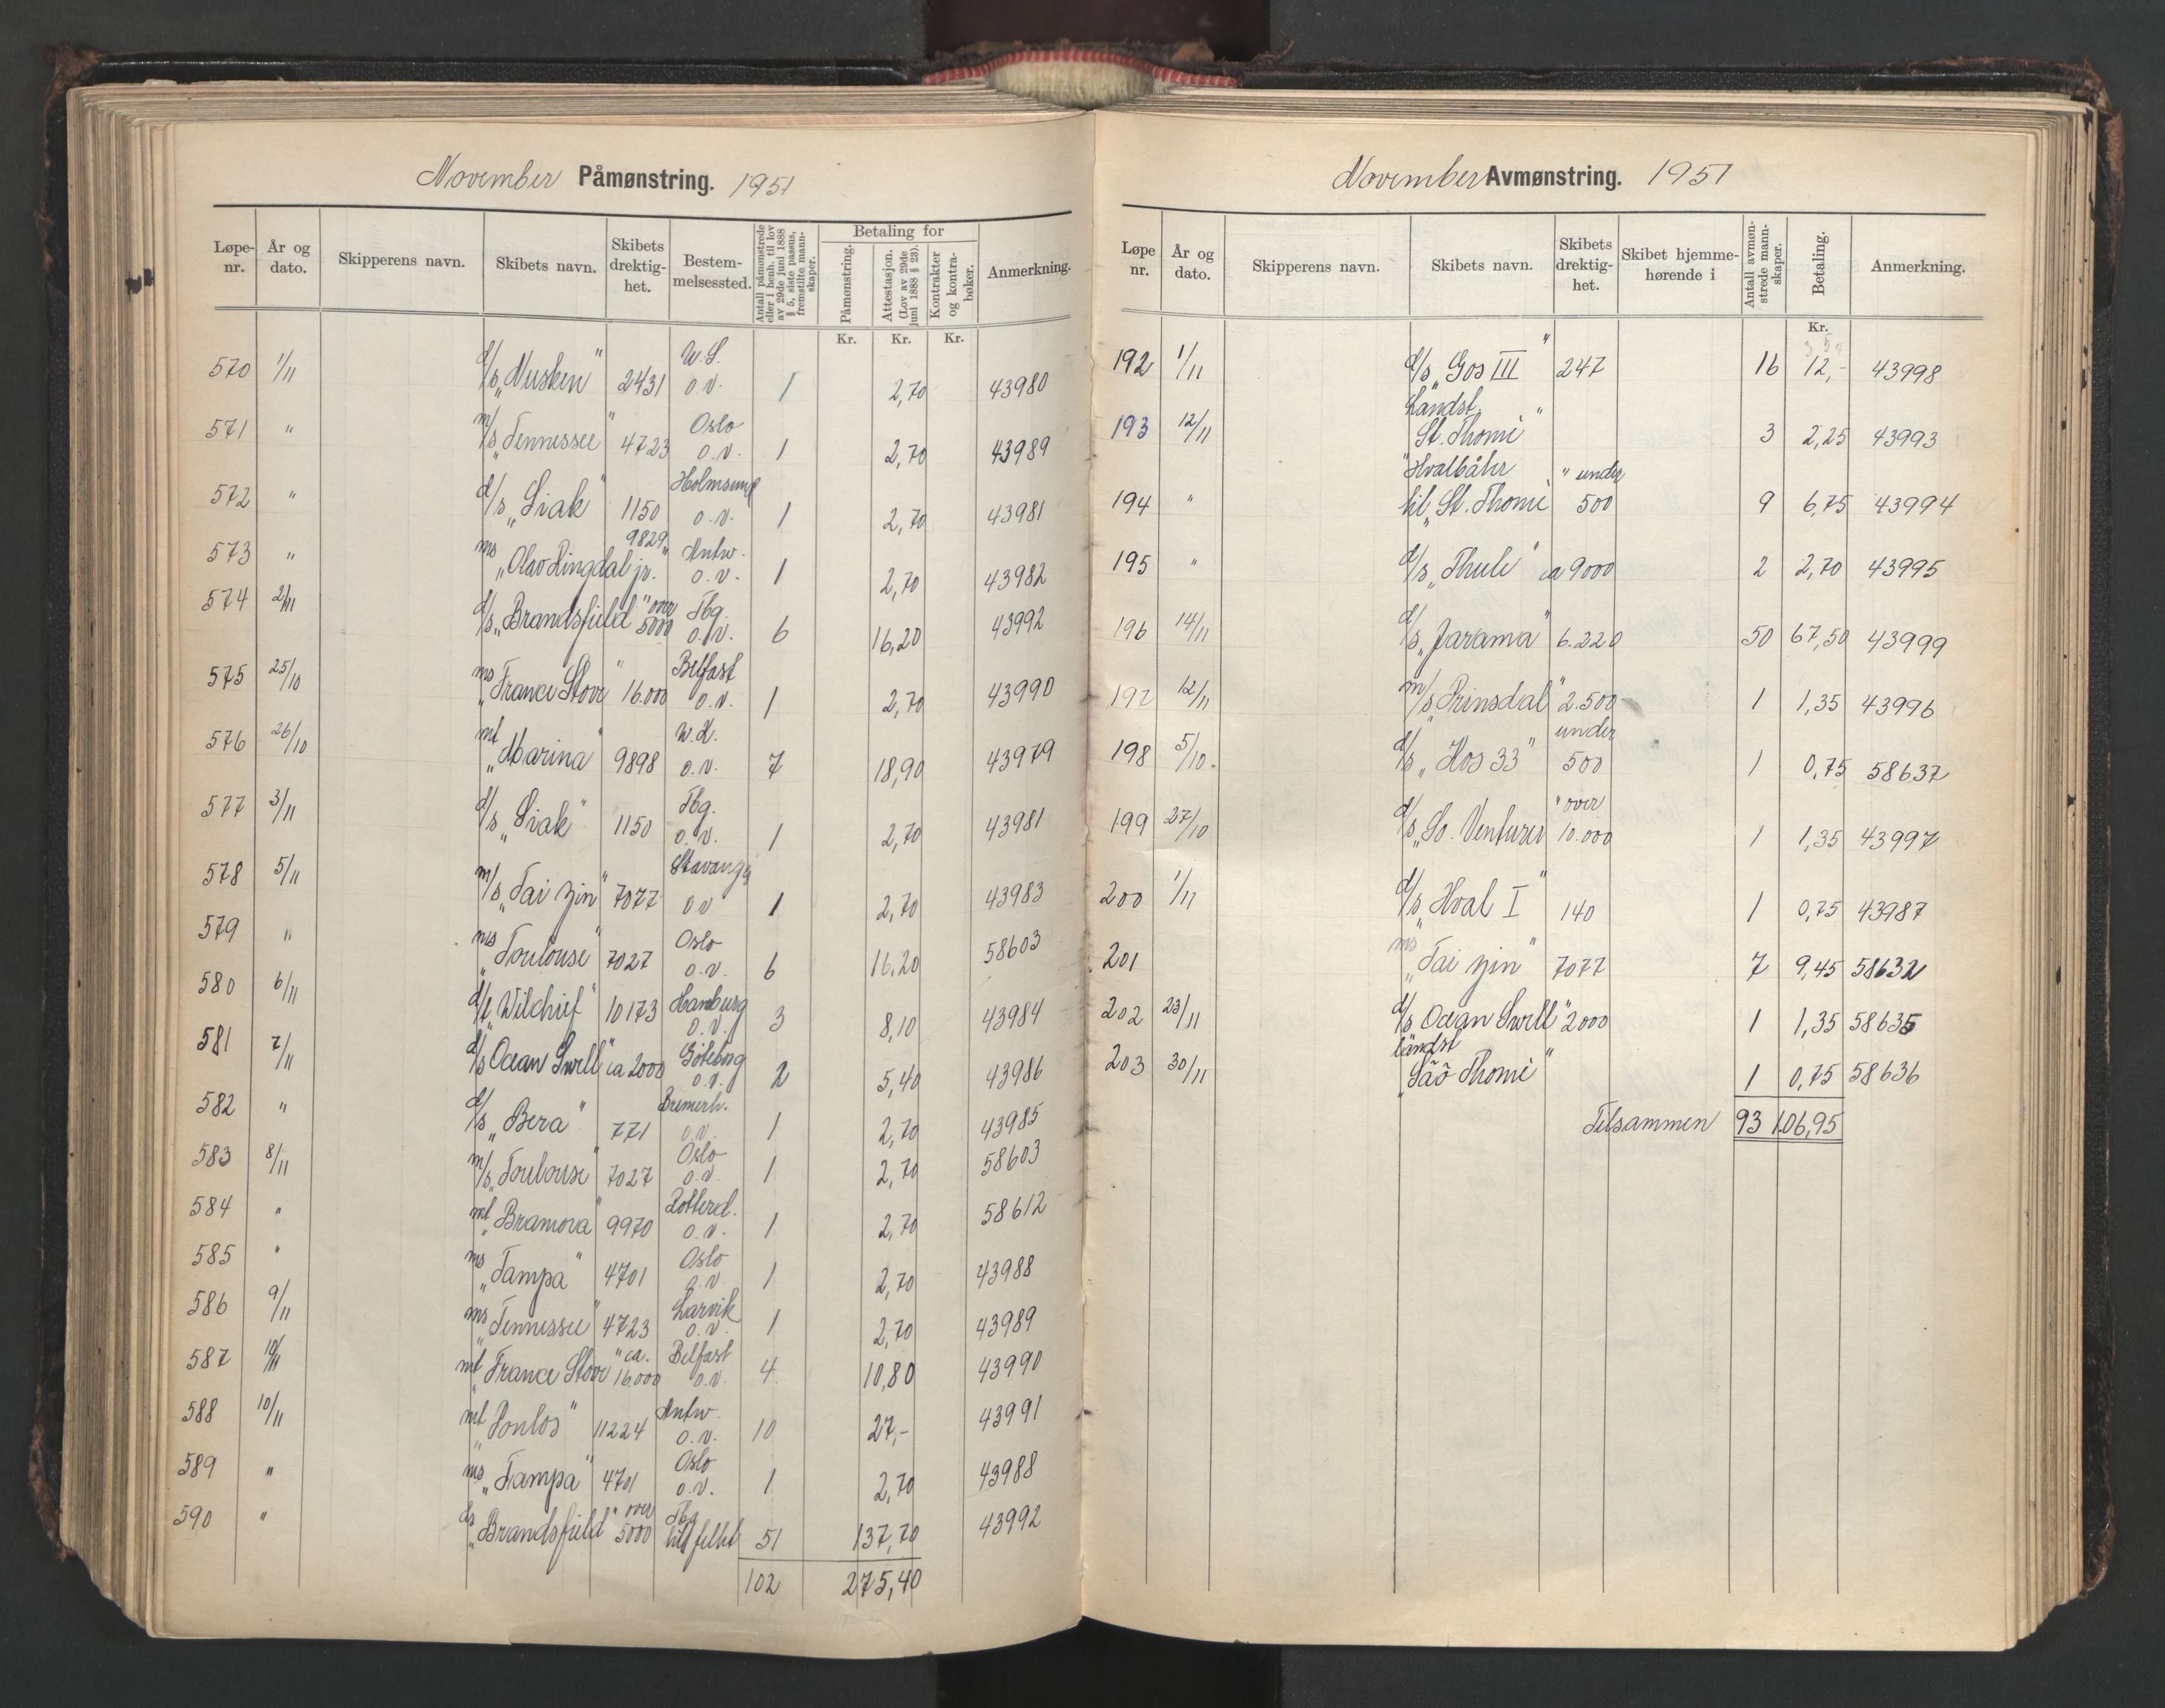 November Påmønstring. 1951
Løpe-nr. | År og dato. | Skipperens navn. | Skibets navn. | Skibets drektig-het. | Bestem-melsessted. | Antall påmønstrede eller i henh. til lov av 29de juni 1888 § 5, siste passus, fremstilte mann-skaper. | Betaling for | Påmønstring. | Attestasjon. (Lov av 29de juni 1888 § 23). | Kontrakter og kontra-bøker. | Anmerkning.
Kr. | Kr. | Kr.
570 | 1/11 | d/s „Nusken" | 2431 | W.S. o.v. | 1 | 2,70 | 43980
571 | " | m/s „Tennessee" | 4723 | Oslo o.v. | 1 | 2,70 | 43989
572 | " | d/s „Siak" | 1150 | Holmsund o.v. | 1 | 2,70 | 43981
573 | " | ms „Olav Ringdal jr." | 9829 | Antw. o.v. | 1 | 2,70 | 43982
574 | 2/11 | d/s „Brandsfield" | over 5000 | Tbg. o.v. | 6 | 16,20 | 43992
575 | 25/10 | ms „France Stove" | 16.000 | Belfast o.v. | 1 | 2,70 | 43990
576 | 26/10 | mt „Marina" | 9898 | o.v. | 7 | 18,90 | 43979
577 | 3/11 | d/s „Siak" | 1150 | Tbg. o.v. | 1 | 2,70 | 43981
578 | 5/11 | m/s „Tai Yin" | 7077 | Stavanger o.v | 1 | 2,70 | 43983
579 | " | ms „Toulouse" | 7027 | Oslo o.v. | 6 | 16.20 | 58603
580 | 6/11 | d/t „Wilchief" | 10173 | Hamburg o.v. | 3 | 8,10 | 43984
581 | 7/11 | d/s „Ocean Swell" | ca 2000 | Göteborg o.v. | 2 | 5,40 | 43986
582 | " | d/s „Bera" | 771 | Bremerh. o.v. | 1 | 2,70 | 43985
583 | 8/11 | m/s „Toulouse" | 7027 | Oslo o.v. | 1 | 2,70 | 58603
584 | " | mt „Bramora" | 9970 | Rotterd. o.v. | 1 | 2,70 | 58612
585 | " | ms „Tampa" | 4701 | Oslo o.v. | 1 | 2,70 | 43988
586 | 9/11 | ms „Tennessee" | 4723 | Larvik o.v. | 1 | 2,70 | 43989
587 | 10/11 | mt „France Stove" | ca. 16.000 | Belfast o.v. | 4 | 10,80 | 43990
588 | 10/11 | mt „Ponlos" | 11224 | Antw. o.v. | 10 | 27,- | 43991
589 | " | ms „Tampa" | 4701 | Oslo o.v. | 1 | 2,70 | 43988
590 | " | ds „Brandsfield" | over 5000 | Tbg til feltet | 51 | 137,70 | 43992
102 | 275,40
November Avmønstring. 1951
Løpe nr. | År og dato. | Skipperens navn. | Skibets navn. | Skibets drektig-het. | Skibet hjemme-hørende i | Antall avmøn-strede mann-skaper. | Betaling. | Anmerkning.
Kr.
192 | 1/11 | d/s „Gos III" | 247 | 16 | 12,- | 43998
193 | 12/11 | Landst. „St. Thomé" | 3 | 2,25 | 43993
194 | " | Hvalbåter til „St. Thomé" | under 500 | 9 | 6,75 | 43994
195 | " | d/s „Thule" | ca 9000 | 2 | 2,70 | 43995
196 | 14/11 | d/s „Jarama" | 6.220 | 50 | 67,50 | 43999
197 | 12/11 | m/s „Prinsdal" | 2.500 | 1 | 1,35 | 43996
198 | 5/10. | d/s „Kos 33" | under 500 | 1 | 0,75 | 58637
199 | 27/10 | d/s „So. Venturer" | over 10.000 | 1 | 1,35 | 43997
200 | 1/11 | d/s „Hval I" | 140 | 1 | 0,75 | 43987
201 | ms „Tai Yin" | 7077 | 7 | 9,45 | 58632
202 | 23/11 | d/s „Ocean Swell" | 2000 | 1 | 1,35 | 58635
203 | 30/11 | landst „São Thomé" | 1 | 0,75 | 58636
Tilsammen | 93 | 106,95